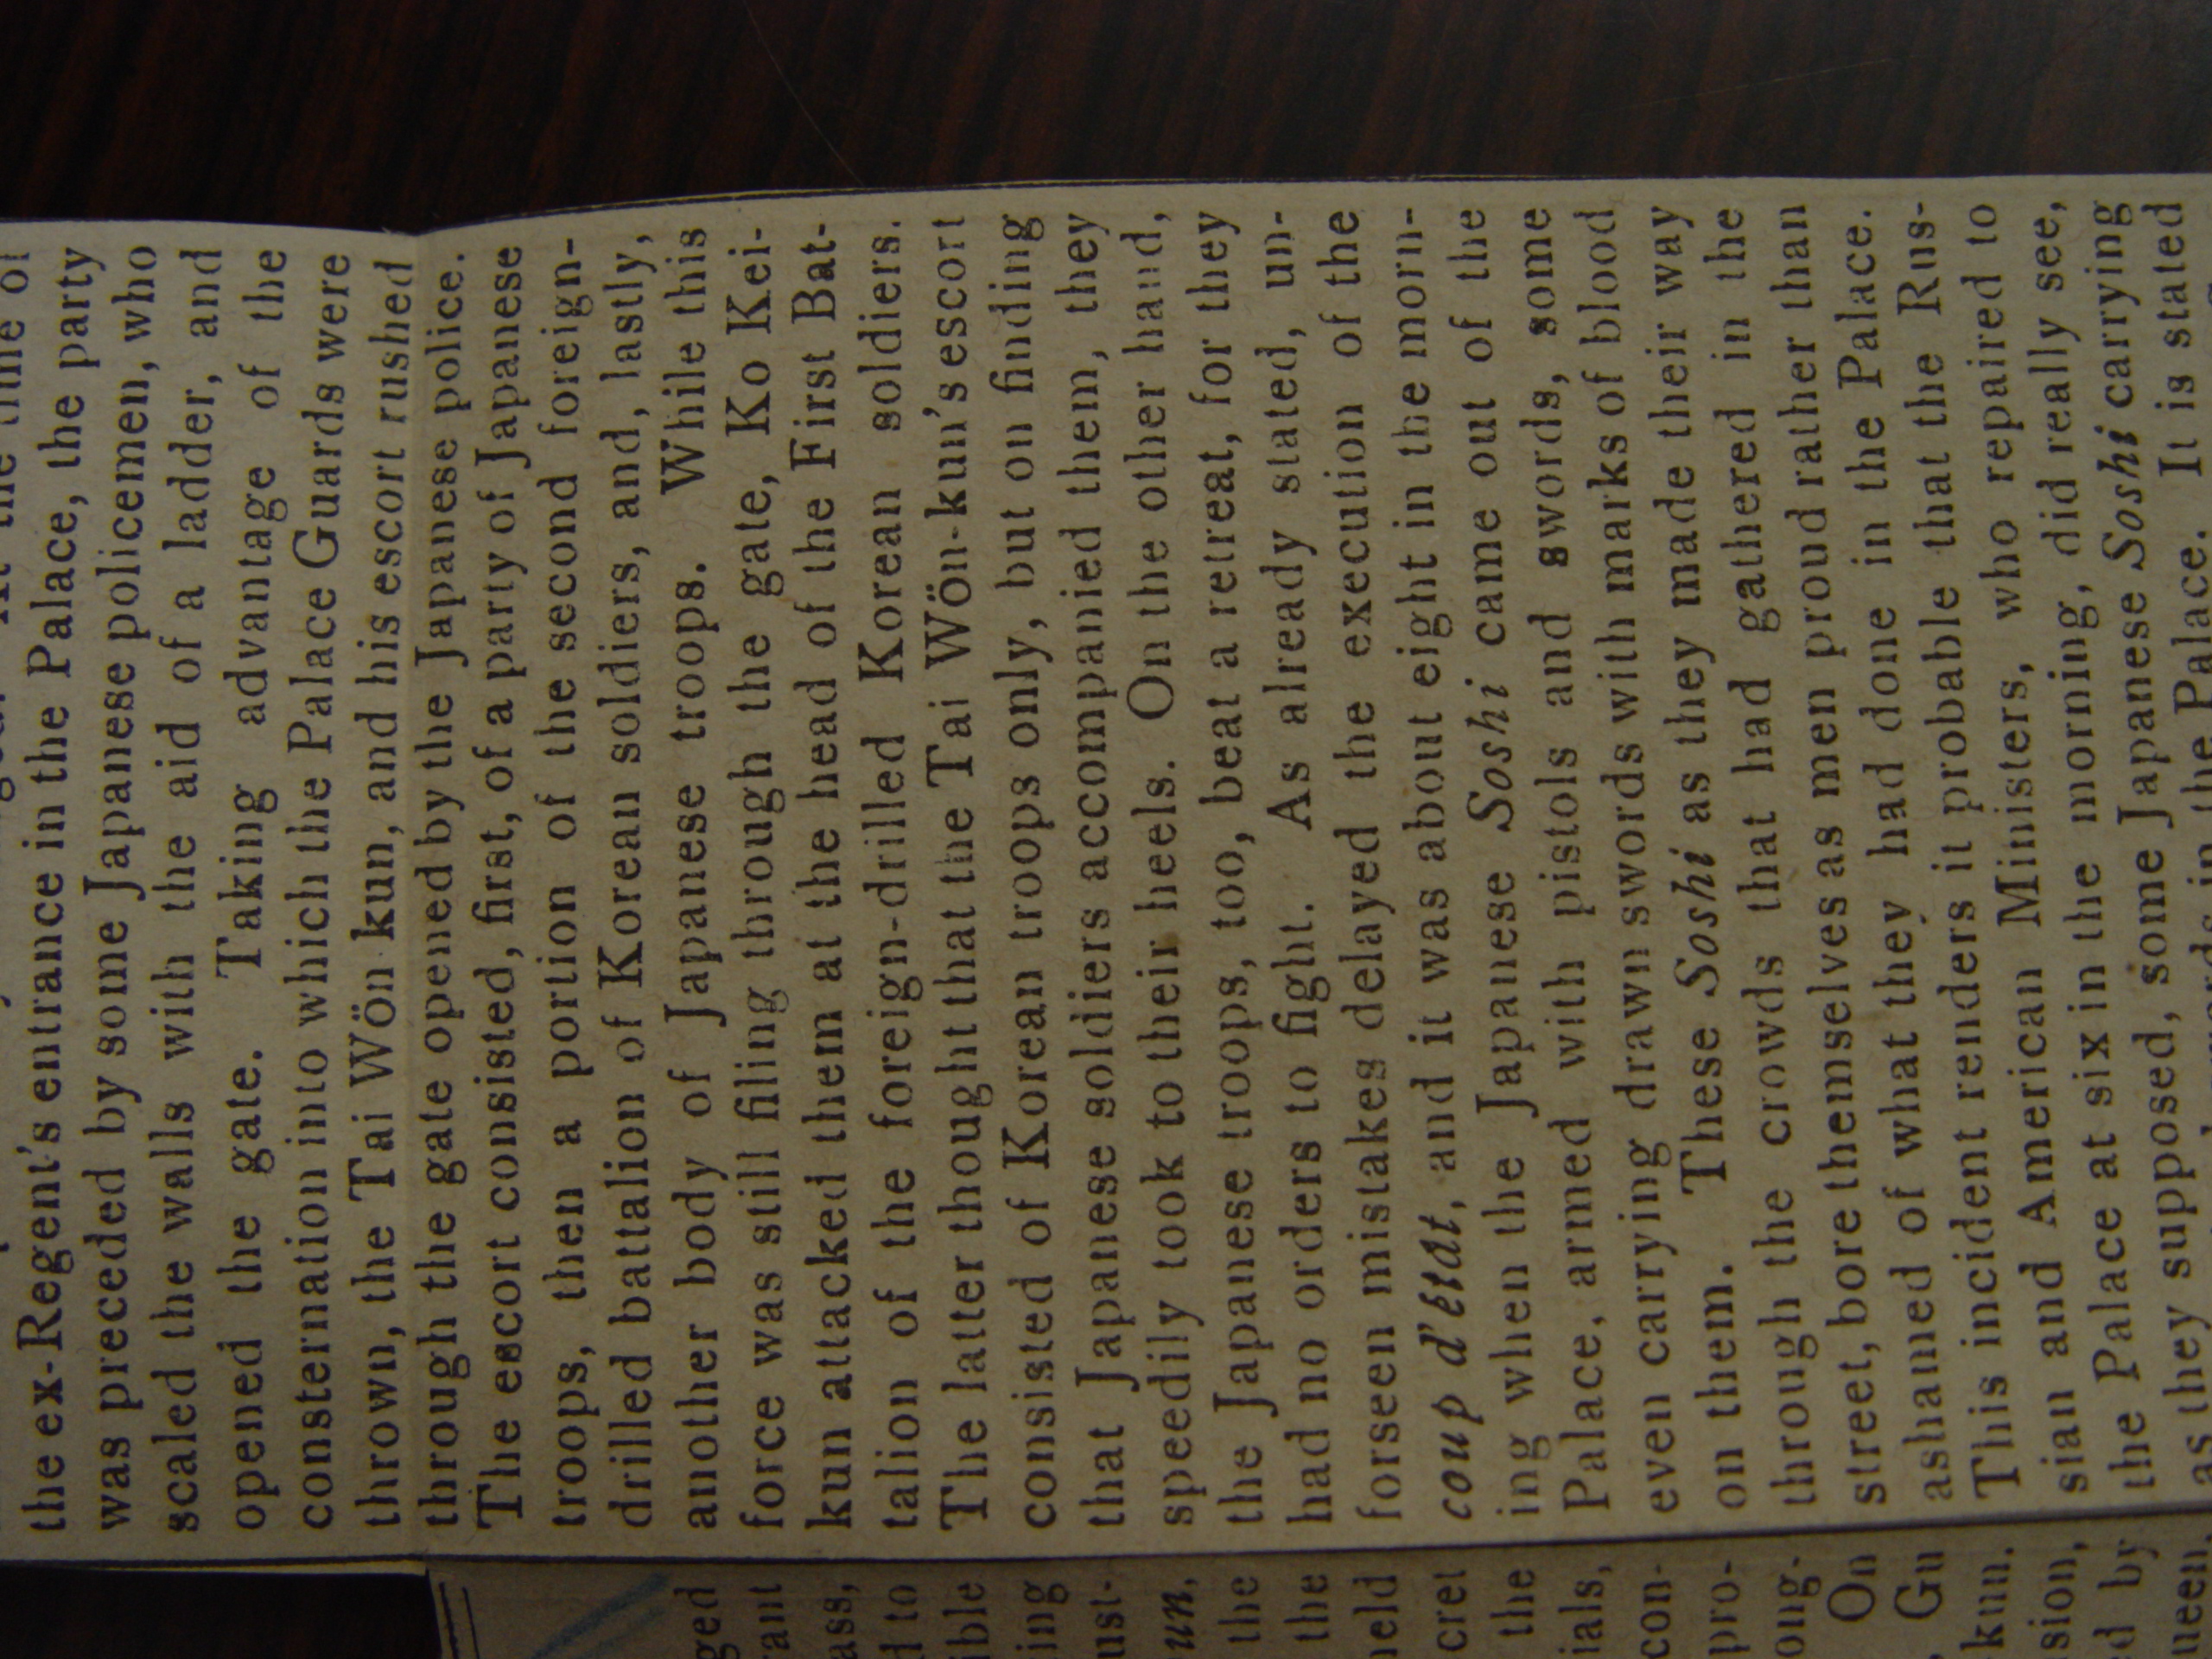 the ex-Regent's entrance in the Palace, the party
was preceded by some Japanese policemen, who
scaled the walls with the aid of a ladder, and
opened the gate. Taking advantage of the
consternation into which the Palace Guards were
thrown, the Tai Wön kun, and his escort rushed
through the gate opened by the Japanese police.
The escort consisted, first, of a party of Japanese
troops, then a portion of the second foreign-
drilled battalion of Korean soldiers, and, lastly,
another body of Japanese troops. While this
force was still filing through the gate, Ko Kei-
kun attacked them at the head of the First Bat-
talion of the foreign-drilled Korean soldiers.
The latter thought that the Tai Wön-kun's escort
consisted of Korean troops only, but on finding
that Japanese soldiers accompanied them, they
speedily took to their heels. On the other hand,
the Japanese troops, too, beat a retreat, for they
had no orders to fight. As already stated, un-
forseen mistakes delayed the execution of the
coup d'état, and it was about eight in the morn-
ing when the Japanese Soshi came out of the
Palace, armed with pistols and swords, some
even carrying drawn swords with marks of blood
on them. These Soshi as they made their way
through the crowds that had gathered in the
street, bore themselves as men proud rather than
ashamed of what they had done in the Palace.
This incident renders it probable that the Rus-
sian and American Ministers, who repaired to
the Palace at six in the morning, did really see,
as they supposed, some Japanese Soshi carrying
in the Palace. It is stated
ged
rant
ass,
d to
ible
ing
ust-
un,
the
the
held
cret
the
ials,
con-
pro-
ong-
On
Gu
kun.
sion,
ed by
ueen,